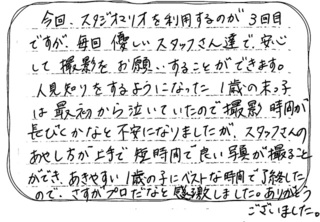 今回、スタジオマリオを利用するのが3回目
ですが、毎回優しいスタッフさん達で、安心
して撮影をお願いすることができます。
人見知りをするようになった1歳の末っ子
は最初から泣いていたので撮影時間が
長びくかなと不安になりましたが、スタッフさんの
あやし方が上手で短時間で良い写真が撮ること
ができ、あきやすい1歳の子にベストな時間で終了した
ので、さすがプロだなと感激しました。ありがとう
ございました。